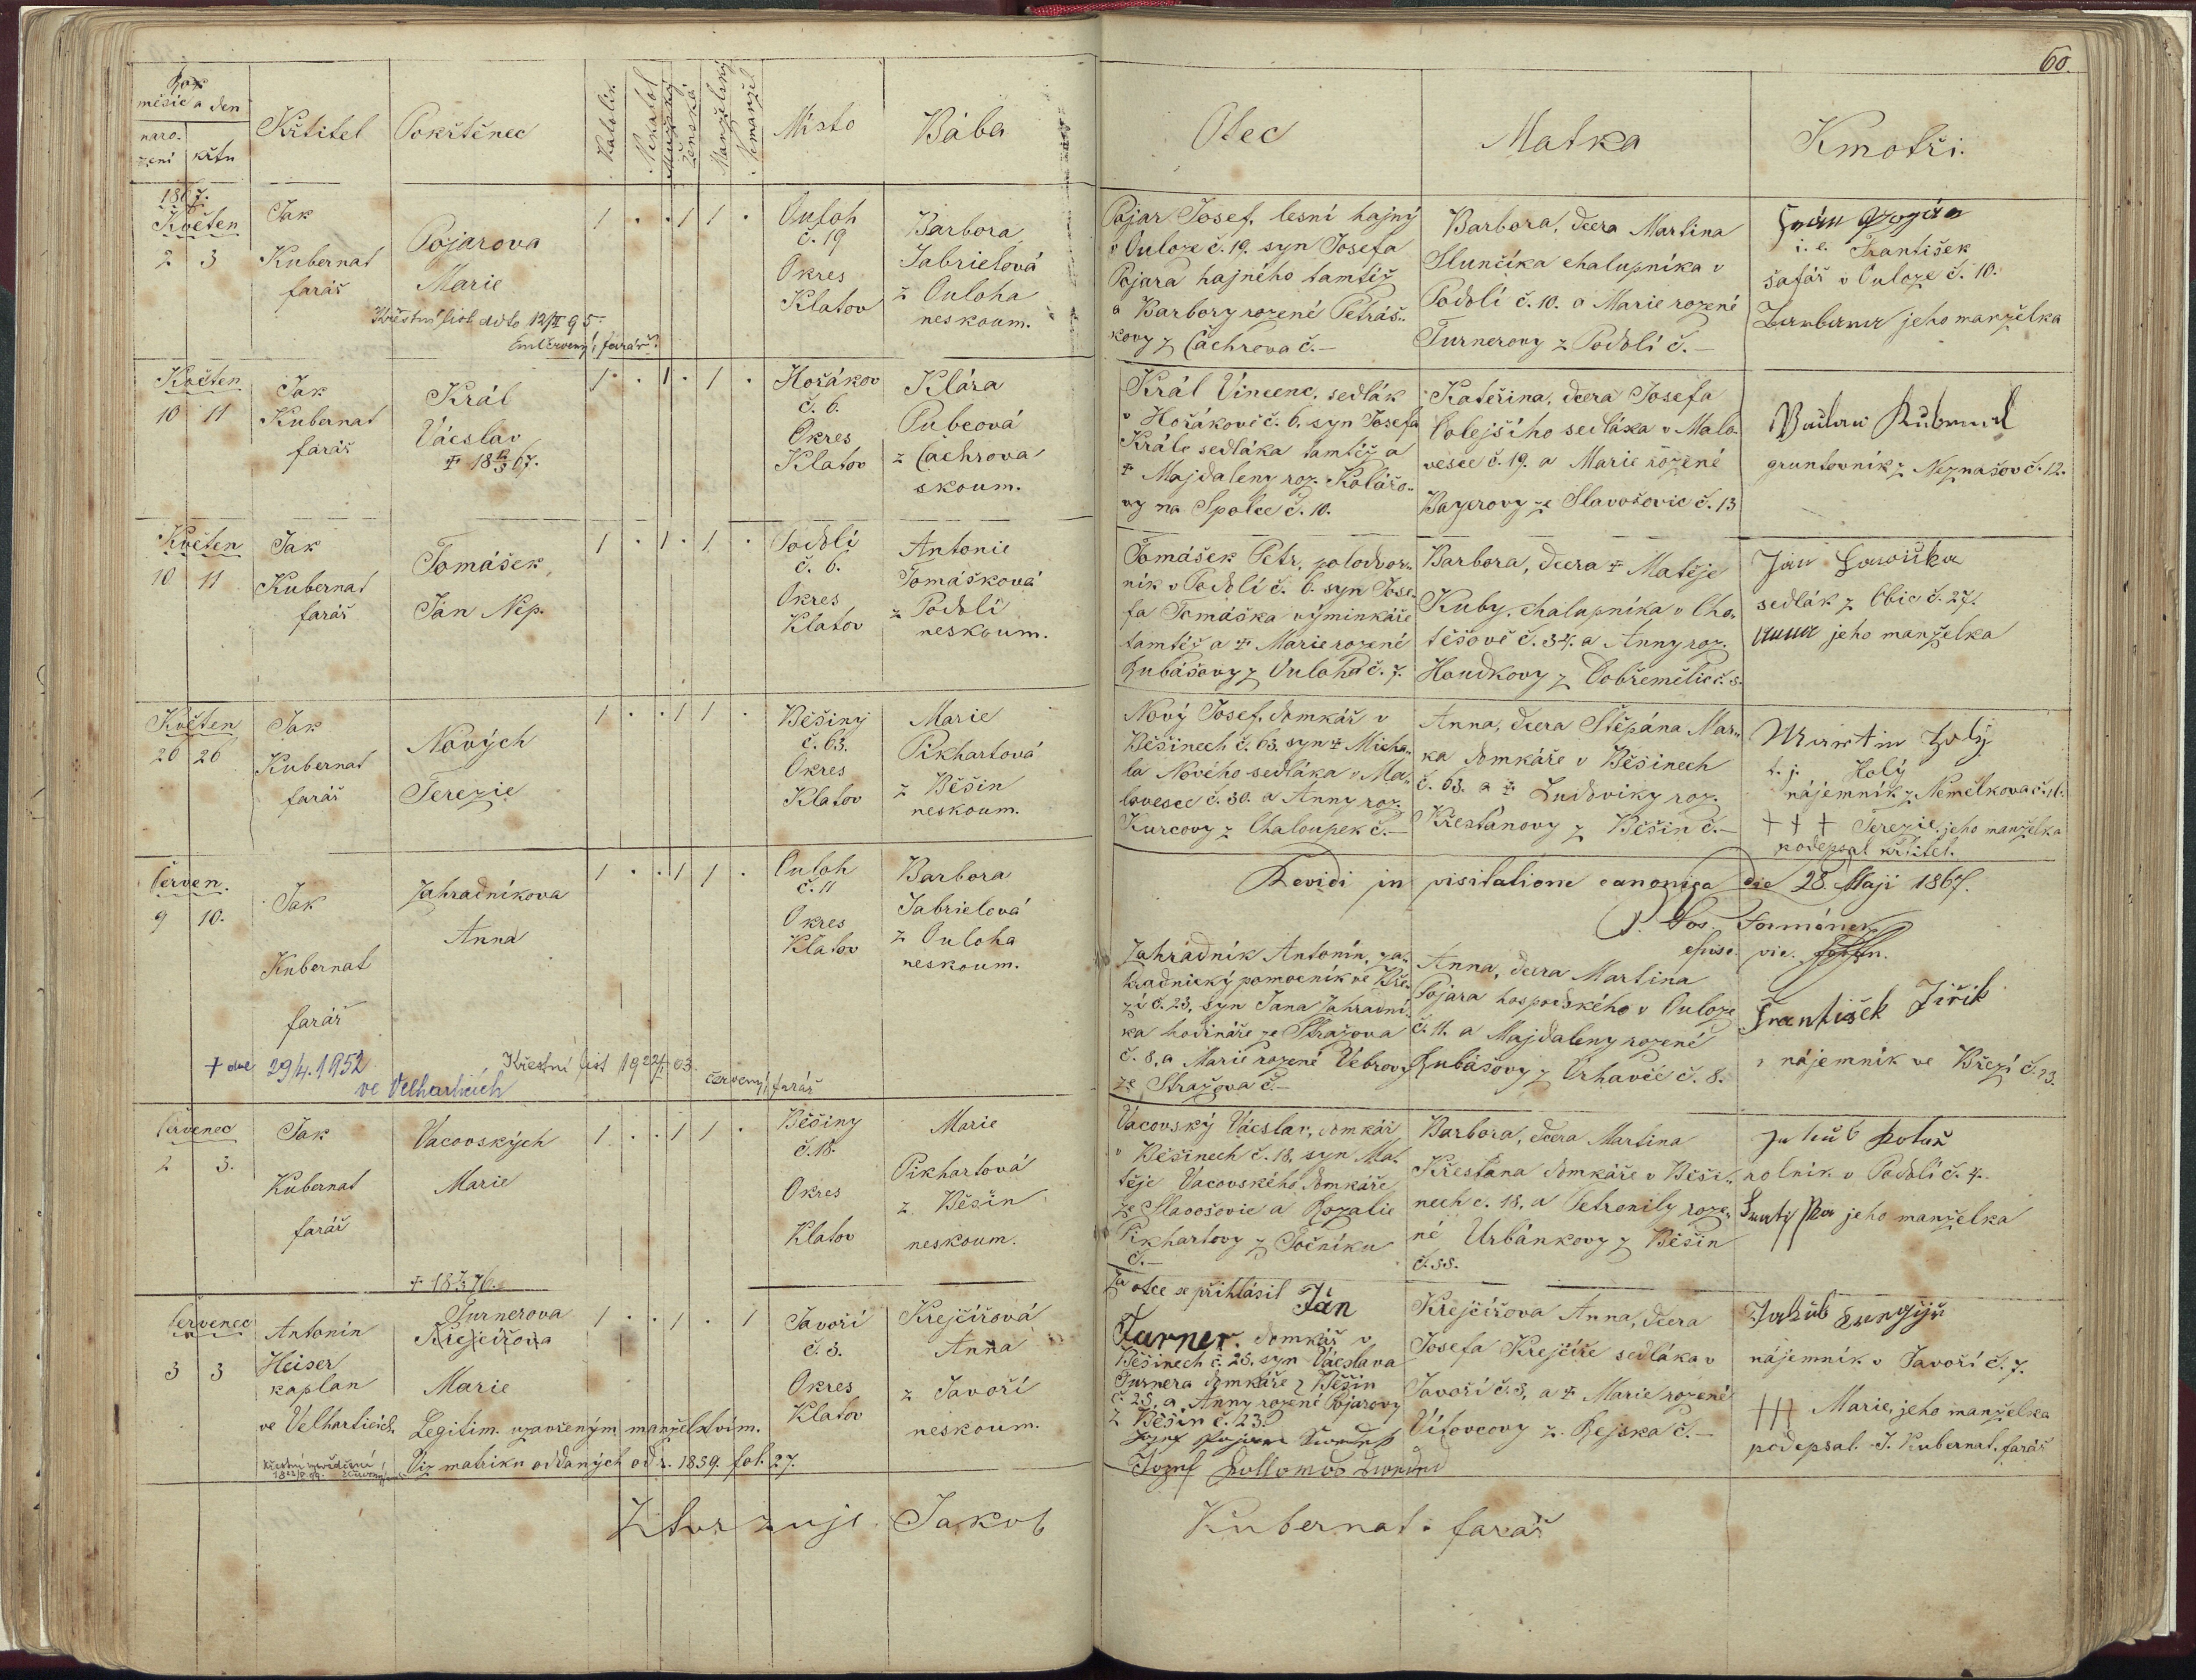 60.
Rok
měsíc a den
naro-
zení
křtu
Křtitel
Pokřtěnec
Katolík
Nekatol
Mužský
Ženská
Manželský
Nemanžel
Místo
Bába
Otec
Matka
Kmotři.
1867.
Květen
2 3
Jak
Kubernat
farář
Pojarova
Marie
Křestní list ddto 12/II 95
Em Červený, farář
1 · · 1 1 ·
Ouloh
č. 19
Okres
Klatov
Barbora
Gabrielová
z Ouloha
neskoum.
Pojar Josef, lesní hajný
v Ouloze č. 19. syn Josefa
Pojara hajného tamtéž
a Barbory rozené Petráš-
kovy z Čachrova č. —
Barbora, dcera Martina
Slunčíka chalupníka v
Podolí č. 10. a Marie rozené
Turnerovy z Podolí č. —
i. e. František
šafář v Ouloze č. 10.
Barbora jeho manželka
Květen
10 11
Jak
Kubernat
farář
Král
Václav
† 18 67.
1 · 1 · 1 ·
Hořákov
č. 6.
Okres
Klatov
Klára
Pubcová
z Čachrova
skoum.
Král Vincenc, sedlák
v Hořákově č. 6. syn Josefa
Krále sedláka tamtéž a
† Majdaleny roz. Kolářo-
vy na Spolce č. 10.
Kateřina, dcera Josefa
Colejšího sedláka v Malo-
vesce č. 19. a Marie rozené
Bayerovy ze Slavošovic č. 13
Václav Kubernat
gruntovník z Neznašov č. 12.
Květen
10 11
Jak
Kubernat
farář
Tomášek
Jan Nep.
1 · 1 · 1 ·
Podolí
č. 6.
Okres
Klatov
Antonie
Tomášková
z Podolí
neskoum.
Tomášek Petr, polodvor-
ník v Podolí č. 6. syn Jose-
fa Tomáška výminkáře
tamtéž a † Marie rozené
Kubášovy z Ouloha č. 7.
Barbora, dcera † Matěje
Kuby, chalupníka v Cho-
těšově č. 34. a Anny roz.
Houdkovy z Dobřemělic č. 8.
Jan
sedlák z Obic č. 27.
Anna jeho manželka
Květen
26 26
Jak
Kubernat
farář
Nových
Terezie
1 · · 1 1 ·
Běšiny
č. 63.
Okres
Klatov
Marie
Pikhartová
z Běšin
neskoum.
Nový Josef, domkář v
Běšinech č. 63. syn † Micha-
la Nového sedláka v Ma-
lovesce č. 30. a Anny roz.
Kurcovy z Chaloupek č. —
Anna, dcera Štěpána Mar-
ka domkáře v Běšinech
č. 63. a † Ludoviky roz.
Křesťanovy z Běšin č. —
Martin Holý
t. j. Holý
nájemník z Nemělkova č. 16.
† † † Terezie, jeho manželka
podepsal křtitel.
Revidi in visitatione canonica die 28. Maji 1867.
P. Jos. Formánek
episc. vic.
Červen.
9 10.
Jak
Kubernat
farář
Zahradníkova
Anna
1 · · 1 1 ·
Ouloh
č. 11
Okres
Klatov
Barbora
Gabrielová
z Ouloha
neskoum.
Zahradník Antonín, za-
hradnický pomocník ve Bře-
zí č. 23, syn Jana Zahradní-
ka hodináře ze Stražova
č. 8, a Marie rozené Vébrovy
ze Stražova č. —
Anna, dcera Martina
Pojara hospodského v Ouloze
č. 11. a Majdaleny rozené
Kubášovy z Vrhavče č. 8.
František Jiřík
nájemník ve Březí č. 23.
† dne 29/4. 1952
ve Velharticích
Křestní list 19 22/I 03.
Červený, farář
Červenec
2 3.
Jak
Kubernat
farář
Vacovských
Marie
† 18 76.
1 · · 1 1 ·
Běšiny
č. 18.
Okres
Klatov
Marie
Pikhartová
z Běšin
neskoum.
Vacovský Václav, domkář
v Běšinech č. 18, syn Ma-
těje Vacovského domkáře
ze Slavošovic a Rozalie
Pikhartovy z Točníku
č. —
Barbora, dcera Martina
Křesťana domkáře v Běši-
nech č. 18, a Petronily roze-
né Urbánkovy z Běšin
č. 38.
Jakub
rolník v Podolí č. 4.
jeho manželka
Červenec
3 3
Antonín
Heiser
kaplan
ve Velharticích.
Turnerova
Krejčířova
Marie
Legitim. uzavřeným manželstvím.
Viz matriku oddaných od r. 1839. fol. 27.
1 · · 1 · 1
Javoří
č. 3.
Okres
Klatov
Krejčířová
Anna
z Javoří
neskoum.
Za otce se přihlásil Jan
Turner. domkář v
Běšinech č. 25. syn Václava
Turnera domkáře z Běšin
č. 25, a Anny rozené Pojarovy
z Běšin č. 23.
Krejčířova Anna, dcera
Josefa Krejčíře sedláka v
Javoří č. 3, a † Marie rozené
Vítovcovy z Rejska č. —
Jakub
nájemník v Javoří č. 7.
††† Marie, jeho manželka
podepsal J. Kubernat, farář
Ztvrzuje Jakob
Kubernat, farář